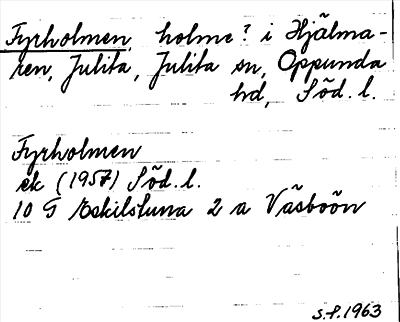 Fyrholmen, holme? i Hjälma-
ren, Julita, Julita sn, Oppunda
hd, Söd. l.
Fyrholmen
ek (1957) Söd. l.
10 G Eskilstuna 2 a Väsboön
s.f. 1963